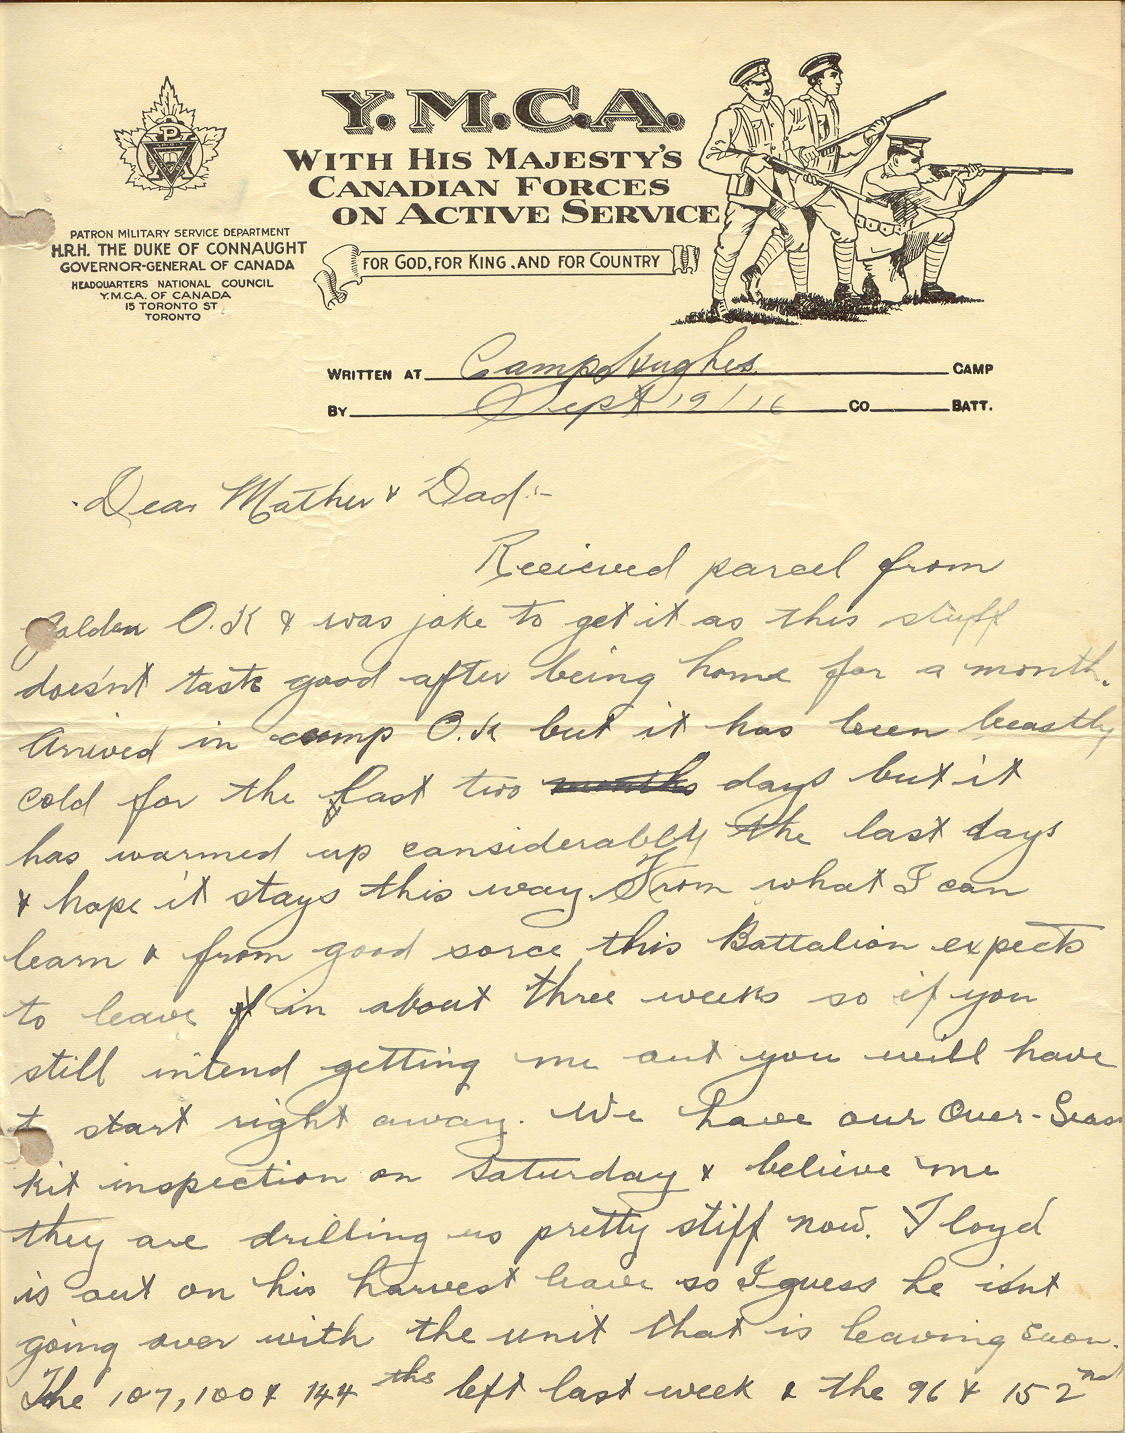 Y.M.C.A.
WITH HIS MAJESTY'S
CANADIAN FORCES
ON ACTIVE SERVICE
FOR GOD, FOR KING, AND FOR COUNTRY
PATRON MILITARY SERVICE DEPARTMENT
H.R.H. THE DUKE OF CONNAUGHT
GOVERNOR-GENERAL OF CANADA
HEADQUARTERS NATIONAL COUNCIL
Y.M.C.A. OF CANADA
15 TORONTO ST
TORONTO
WRITTEN AT Camp Hughes CAMP
BY Sept 19/16 CO BATT.
Dear Mother & Dad:-
Recieved parcel from
Golden O.K & was joke to get it as this stuff
doesn't taste good after being home for a month.
Arrived in camp O.K but it has been beastly
cold for the last two months days but it
has warmed up considerably the last days
& hope it stays this way. From what I can
learn & from good sorce this Battalion expects
to leave in about three weeks so if you
still intend getting me out you will have
t start right away. We have our Over-Seas
kit inspection on Saturday & believe me
they are drilling us pretty stiff now. Floyd
is out on his harvest leave so I guess he isnt
going over with the unit that is leaving soon.
The 107, 100 & 144 ths left last week & the 96 & 152nd